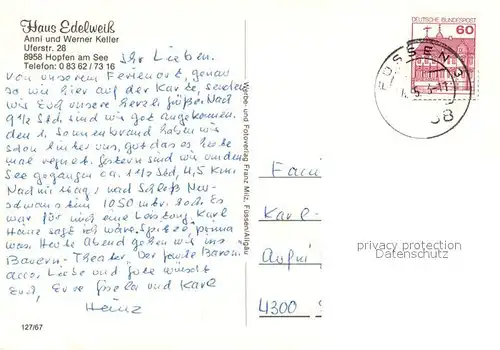 Haus Edelweiß
Anni und Werner Keller
Uferstr. 28
8958 Hopfen am See
Telefon: 0 83 62 / 73 16
Ihr Lieben.
Von unserem Ferienort, genau
so wie hier auf der Karte, senden
wir Euch unsere herzl. Grüße. Nach
9 1/2 Std. sind wir gut angekommen.
den 1. Sonnenbrand haben wir
schon hinter uns, gut das es heute
mal regnet. gestern sind wir um den
See gegangen ca. 1 1/2 Std, 4,5 Km.
Nachmittag, nach Schloß Neu-
schwanstein 1050 m
war für mich eine Leistung. Karl
Heinz sagt ich wäre Spitze, prima
was. Heute Abend gehen wir ins
Bauern-Theater. Der
alles Liebe und Gute wünscht
Euch, Eure Gisela und Karl
Heinz
127/67
Werbe- und Fotoverlag Franz Milz, Füssen/Allgäu
DEUTSCHE BUNDESPOST
60
FÜSSEN
Fam
Karl-
4300
privacy protection
Datenschutz